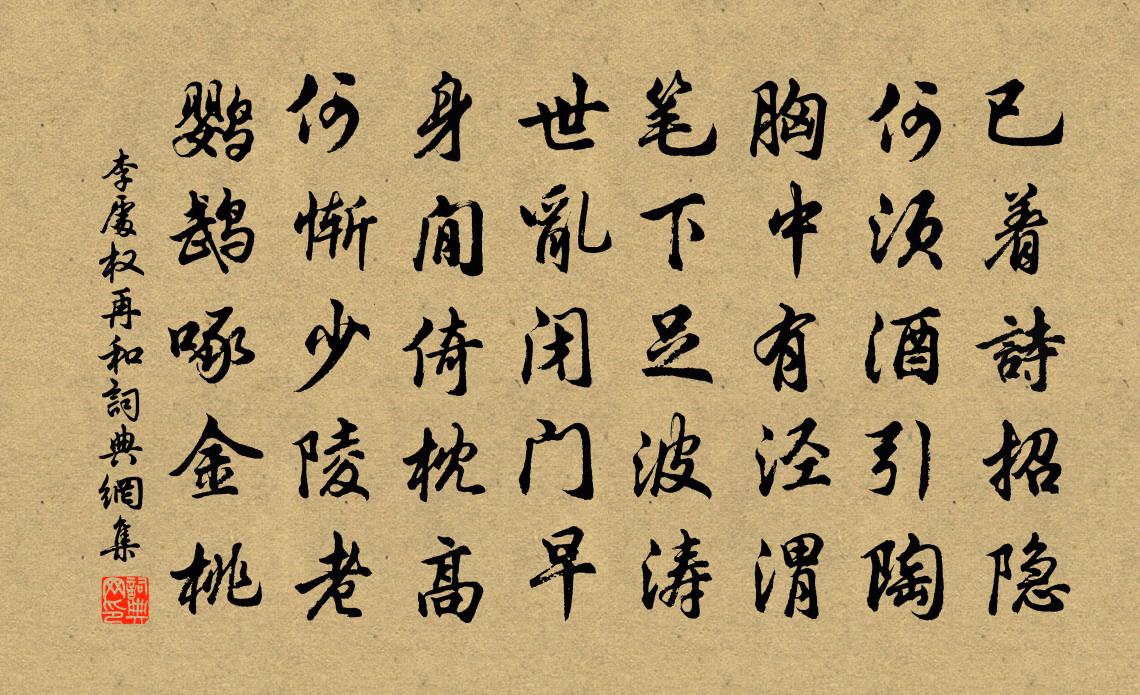 已着詩招隐
何须酒引陶
胸中有泾渭
笔下足波涛
世亂闭门早
身閒倚枕高
何惭少陵老
鹦鹉啄金桃
李處权再和詞典網集
詞典网印